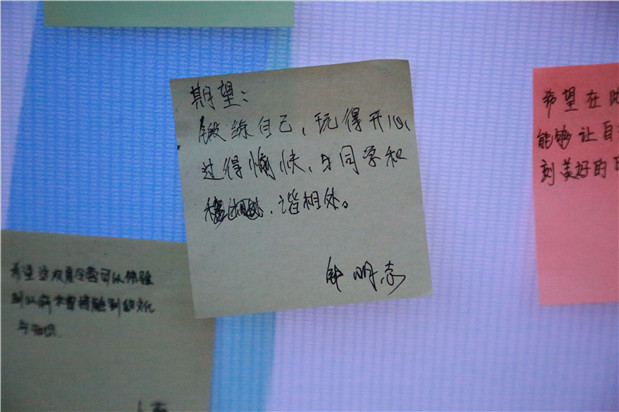 期望:
锻练自己,玩得开心,
过得愉快,与同学和
谐相处。
明
希望在
能够让自
刻美好的
希望这次夏令营可以体验
到以前未曾接触到的文化
与知识